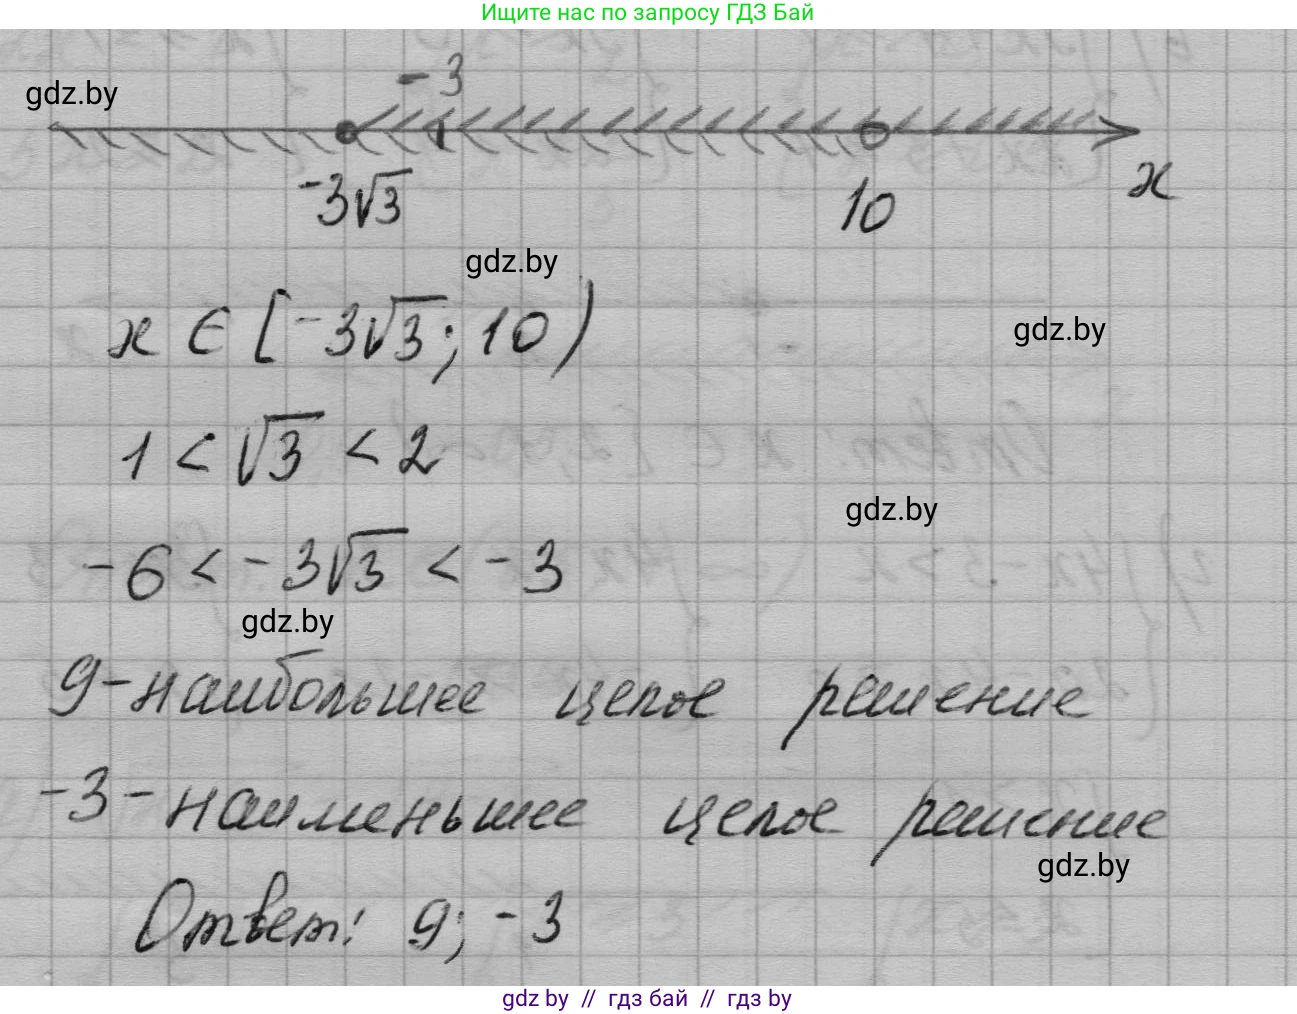 Ищите нас по запросу ГДЗ Бай
gdz.by
-3
-3√3
10
x
gdz.by
x ∈ [-3√3; 10)
gdz.by
1 < √3 < 2
gdz.by
-6 < -3√3 < -3
gdz.by
9-наибольшее целое решение
-3-наименьшее целое решение
gdz.by
Ответ: 9; -3
gdz by // гдз бай // гдз by